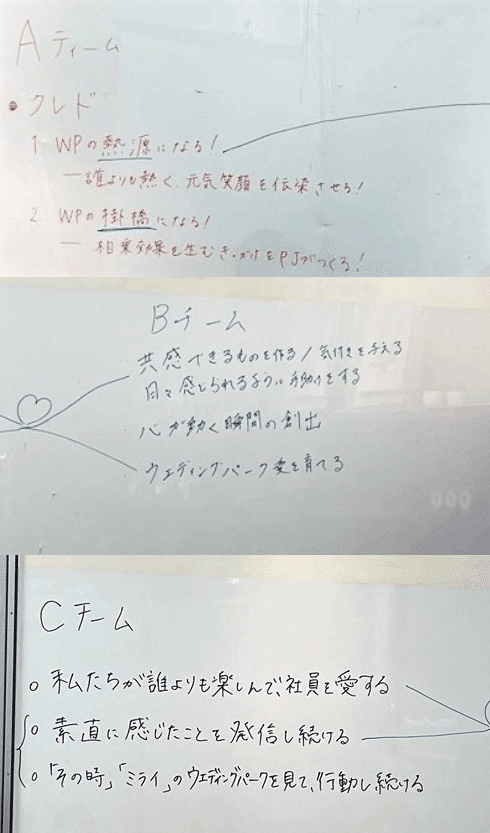 Aティーム
• クレド
1. WPの熱源になる!
― 誰よりも熱く、元気笑顔を伝染させる!
2. WPの掛橋になる!
― 相乗効果を生むきっかけをPJがつくる!
Bチーム
共感できるものを作る/気付きを与える
日々感じとられるように手助けをする
心が動く瞬間の創出
ウェディングパーク愛を育てる
Cチーム
○ 私たちが誰よりも楽しんで、社員を愛する
○ 素直に感じたことを発信し続ける
○「その時」「ミライ」のウエディングパークを見て、行動し続ける